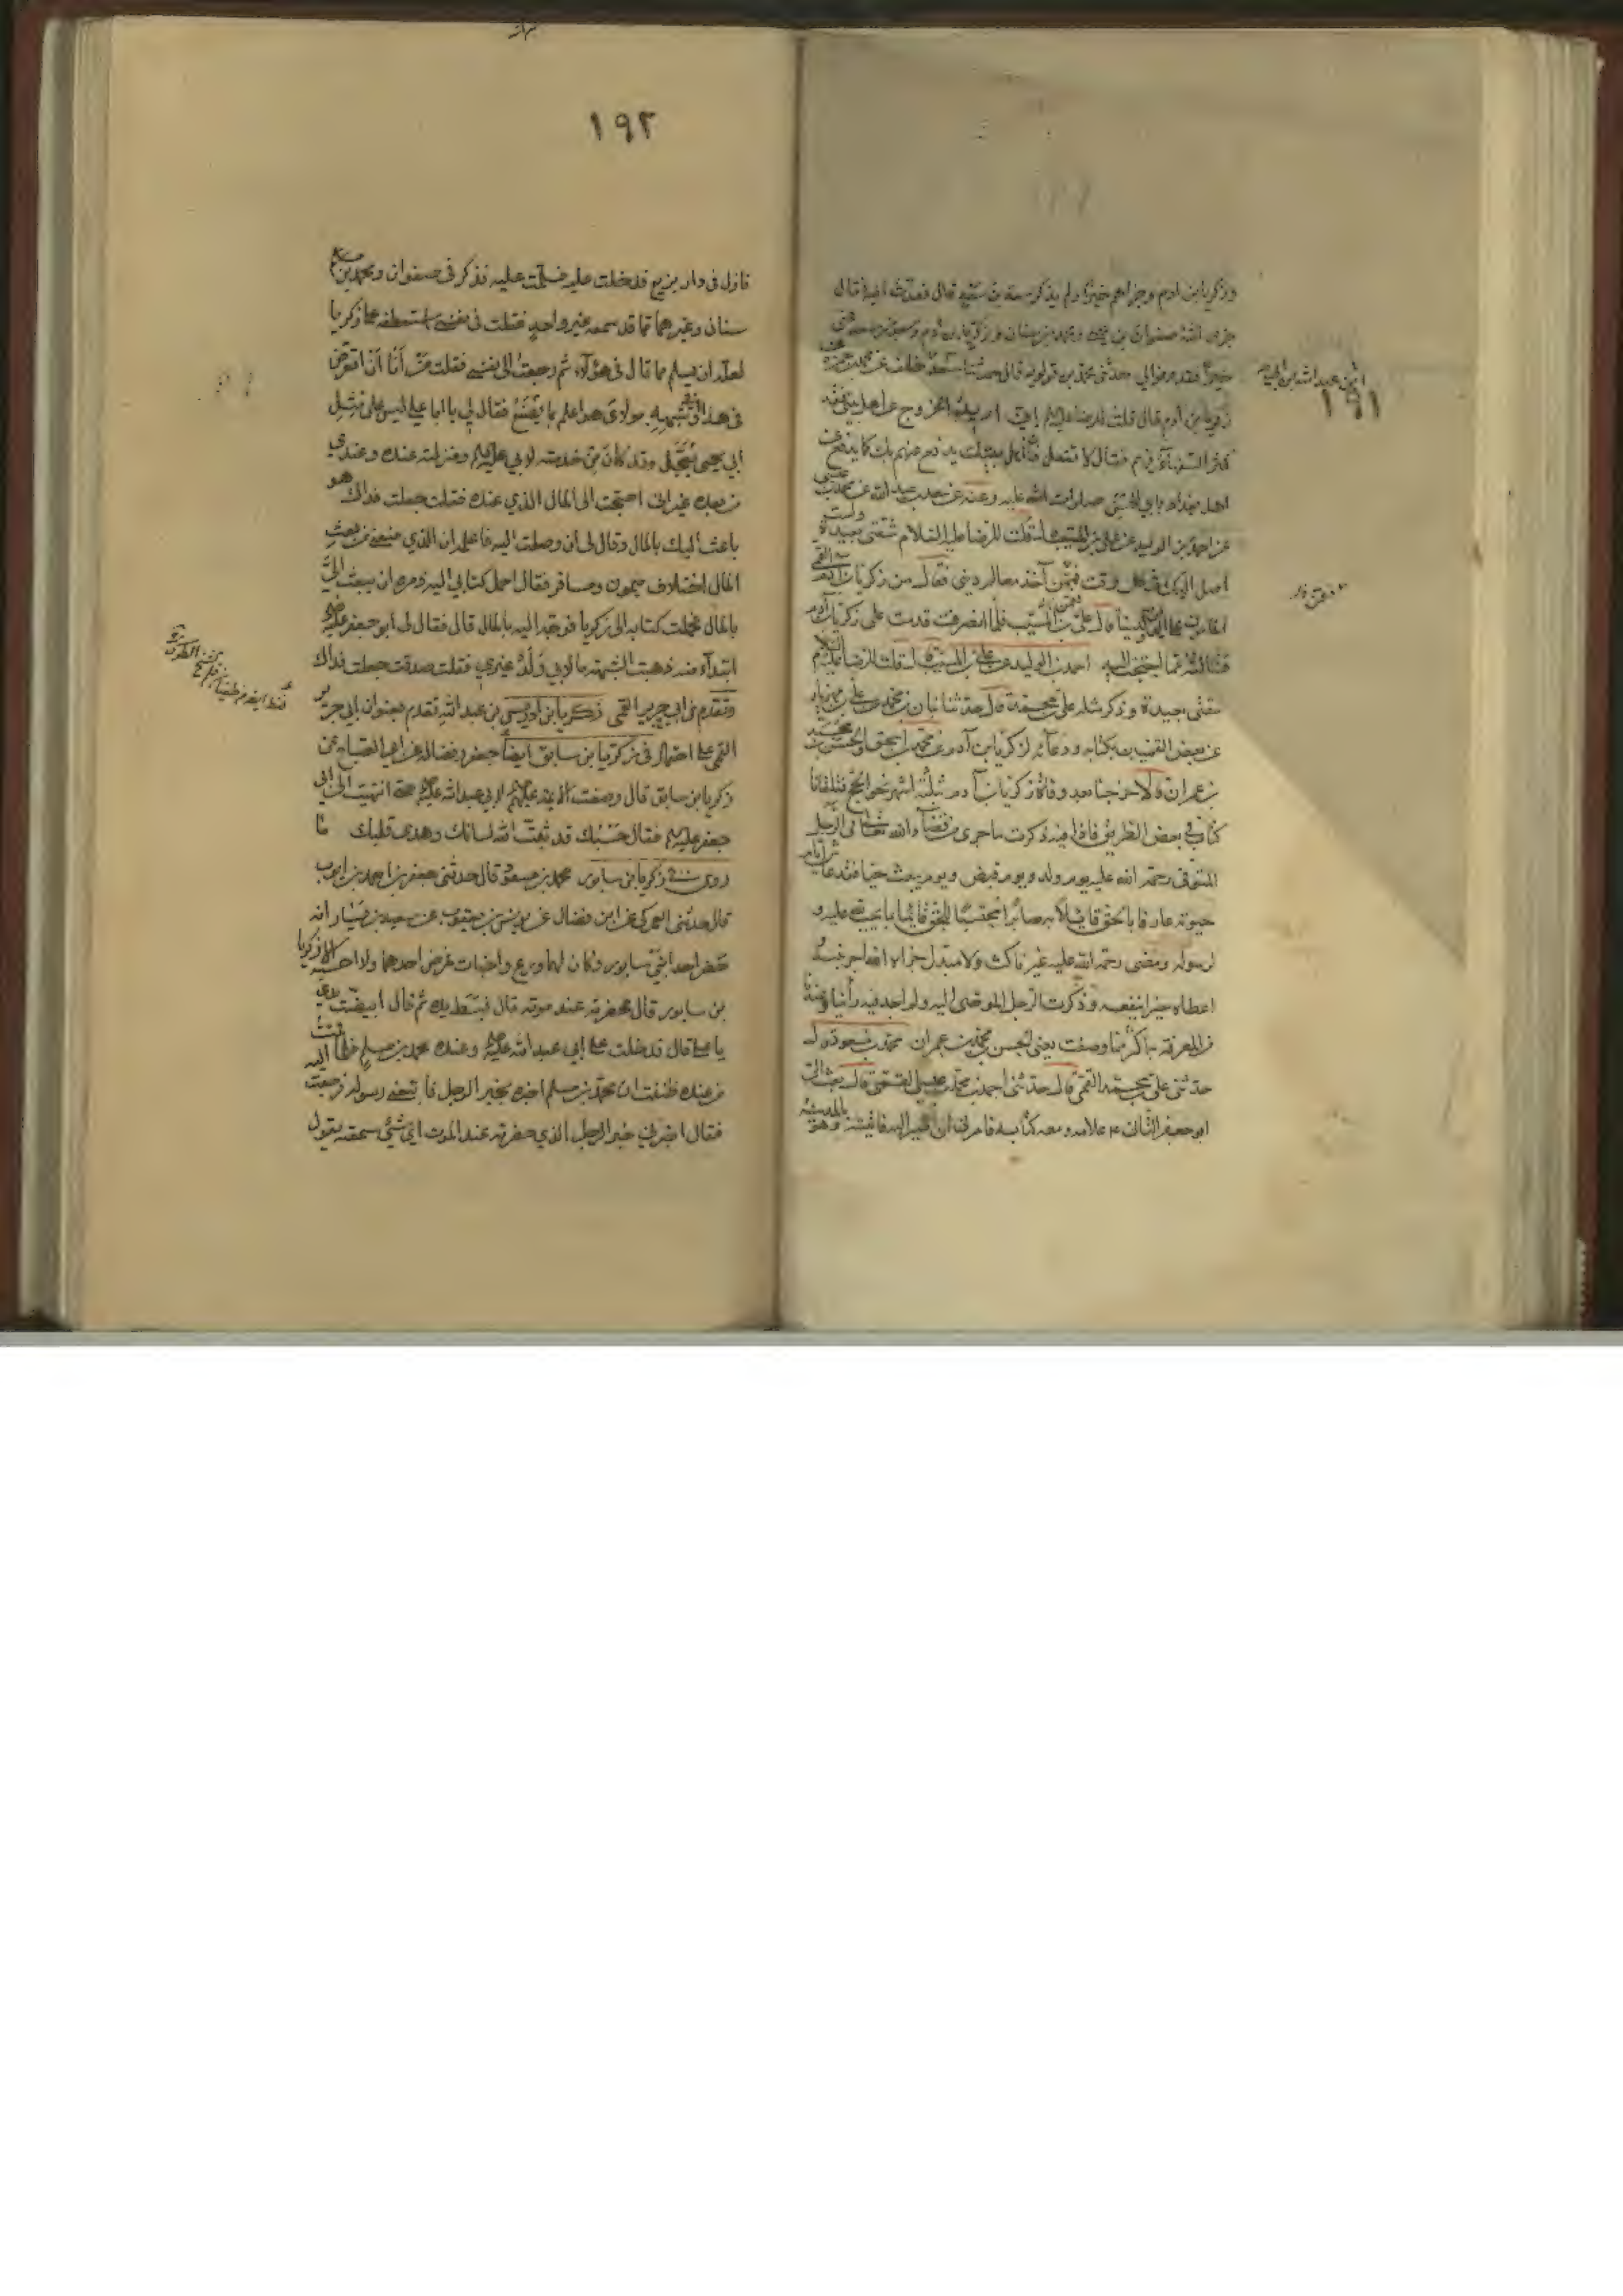 ١٩١
وزكريا بن ادم وجزاهم خيرا ولم يذكر سعد بن سعد قال فعدت اليه فقال
جزى الله صفوان بن يحيى ومحمد بن سنان وزكريا بن ادم وسعد بن سعد عنى
خيرا فقد وفوا لي حدثنى محمد بن قولويه قال حدثنا سعد بن خلف عن محمد بن حمزة عن
زكريا بن ادم قال قلت للرضا عليه السلم انى اريد الخروج عن اهل بيتى فقد
كثر السفهاء فيهم فقال لا تفعل فان اهل بيتك يدفع عنهم بك كما يدفع عن
اهل بغداد بابي الحسن صلوات الله عليه وعنه عن محمد بن عبد الله عن محمد بن عيسى
عن احمد بن الوليد عن على بن المسيب قال قلت للرضا عليه السلام شقتى بعيدة ولست
اصل اليك فى كل وقت فممن آخذ معالم دينى فقال من زكريا بن آدم القمى
المامون على الدين والدنيا قال على بن المسيب فلما انصرفت قدمت على زكريا بن آدم
فسالته عما احتجت اليه احمد بن الوليد عن على بن المسيب قال قلت للرضا عليه السلام
شقتى بعيدة وذكر مثله على بن محمد قال حدثنا بنان بن محمد عن على بن مهزيار
عن بعض القميين بكتابه ودعائه لزكريا بن آدم عن محمد بن اسحق والحسن بن محمد
بن عمران قالا خرجنا بعد وفاة زكريا بن آدم بثلثة اشهر نحو الحج فتلقانا
كتابه فى بعض الطريق فاذا فيه ذكرت ما جرى من قضاء الله تعالى فى الرجل
المتوفى رحمة الله عليه يوم ولد ويوم قبض ويوم يبعث حيا فقد عاش ايام
حيوته عارفا بالحق قائلا به صابرا محتسبا للحق قائما بما يجب عليه و
لرسوله ومضى رحمة الله عليه غير ناكث ولا مبدل جزاه الله اجر نيته
اعطاه خير امنيته وذكرت الرجل الموصى اليه ولم اجد فيه رأينا وعندنا
من المعرفة به اكثر مما وصفت يعنى الحسن بن محمد بن عمران محمد بن مسعود قال
حدثنى على بن محمد القمى قال حدثنى احمد بن محمد بن عيسى القمى قال بعث الى
ابو جعفر الثانى ع غلامه ومعه كتابه فامرنى ان اصير اليه فاتيته وهو بالمدينة
١٩٢
نازل فى دار بزيع فدخلت عليه فسلمت عليه فذكر فى صفوان ومحمد بن
سنان وغيرهما مما قد سمعه غير واحد فقلت فى نفسى استعطفه على زكريا
لعله ان يسلم مما قال فى هؤلاء ثم رجعت الى نفسى فقلت من أنا أن اتعرض
فى هذا وشبهه مولاى هو اعلم بما يصنع فقال لى يا ابا على ليس على مثل
أبي يحيى يعجل وقد كان من خدمته لابي عليه السلم ومنزلته عنده وعندي
من بعده غير انى احتجت الى المال الذي عنده فقلت جعلت فداك هو
باعث اليك بالمال وقال لى ان وصلت اليه فاعلمه ان الذي منعنى من بعث
المال اختلاف ميمون ومسافر فقال احمل كتابي اليه ومره ان يبعث الىّ
بالمال فحملت كتابه الى زكريا فوجه اليه بالمال قال فقال لى أبو جعفر عليه السلم
ابتداء منه ذهبت الشبهة ما لابي ولد غيري فقلت صدقت جعلت فداك
وتقدم فى ابي جرير القمى زكريا بن ادريس بن عبد الله تقدم بعنوان ابي جرير
القمى على احتمال فى زكريا بن سابق ايضا جعفر وفضالة عن ابي الصباح عن
زكريا بن سابق قال وصفت الائمة عليهم السلم لابي عبد الله عليه السلم حتى انتهيت الى ابي
جعفر عليه السلم فقال حسبك قد ثبت الله لسانك وهدى قلبك ما
روى فى زكريا بن سابور محمد بن مسعود قال حدثنى جعفر بن احمد بن ايوب
قال حدثنى العمركى عن ابن فضال عن يونس بن يعقوب عن سعيد بن يسار انه
حضر احد ابنى سابور وكان لهما ورع واخبات فمرض احدهما ولا احسبه الا زكريا
بن سابور قال فحضرته عند موته قال فبسط يده ثم قال ابيضت يدي
يا على قال فدخلت على ابي عبد الله عليه السلم وعنده محمد بن مسلم فلما قمت
من عنده ظننت ان محمد بن مسلم اخبره بخبر الرجل فاتبعنى رسوله فرجعت اليه
فقال اخبرنى خبر الرجل الذي حضرته عند الموت اي شئ سمعته يقول